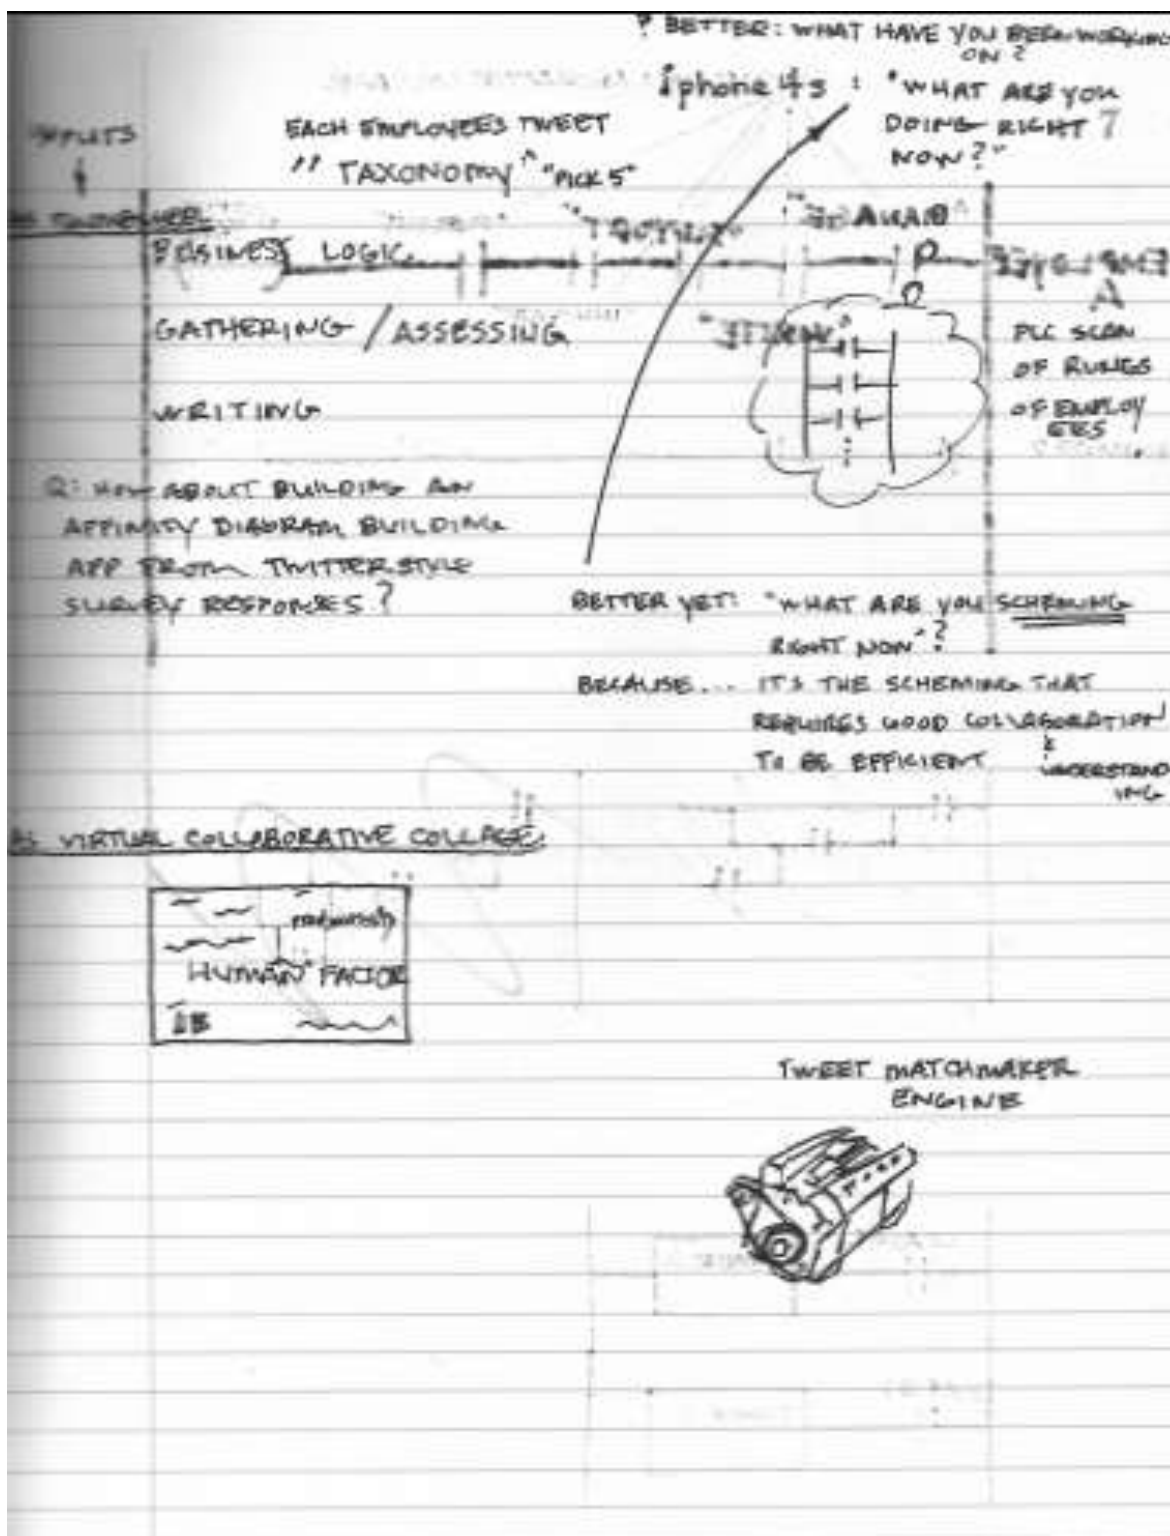 ? BETTER: WHAT HAVE YOU BEEN WORKING
ON?
iphone 4s : "WHAT ARE YOU
DOING RIGHT
NOW?"
EACH EMPLOYEES TWEET
" TAXONOMY " "PICK 5"
BUSINESS LOGIC
GATHERING / ASSESSING
WRITING
PLC SCAN
OF RUNGS
OF EMPLOY
EES
Q: HOW ABOUT BUILDING AN
AFFINITY DIAGRAM BUILDING
APP FROM TWITTER STYLE
SURVEY RESPONSES?
BETTER YET: "WHAT ARE YOU SCHEMING
RIGHT NOW"?
BECAUSE... IT'S THE SCHEMING THAT
REQUIRES GOOD COLLABORATION
TO BE EFFICIENT & UNDERSTAND
ING
AS VIRTUAL COLLABORATIVE COLLAGE
HUMAN FACTOR
TWEET MATCHMAKER
ENGINE